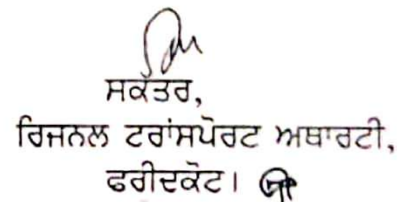 ਸਕੱਤਰ,
ਰਿਜਨਲ ਟਰਾਂਸਪੋਰਟ ਅਥਾਰਟੀ,
ਫਰੀਦਕੋਟ।